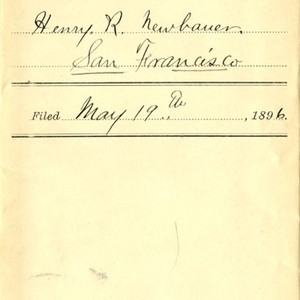 Henry R. Newbauer.
San Francisco
Filed May 19.th, 1896.